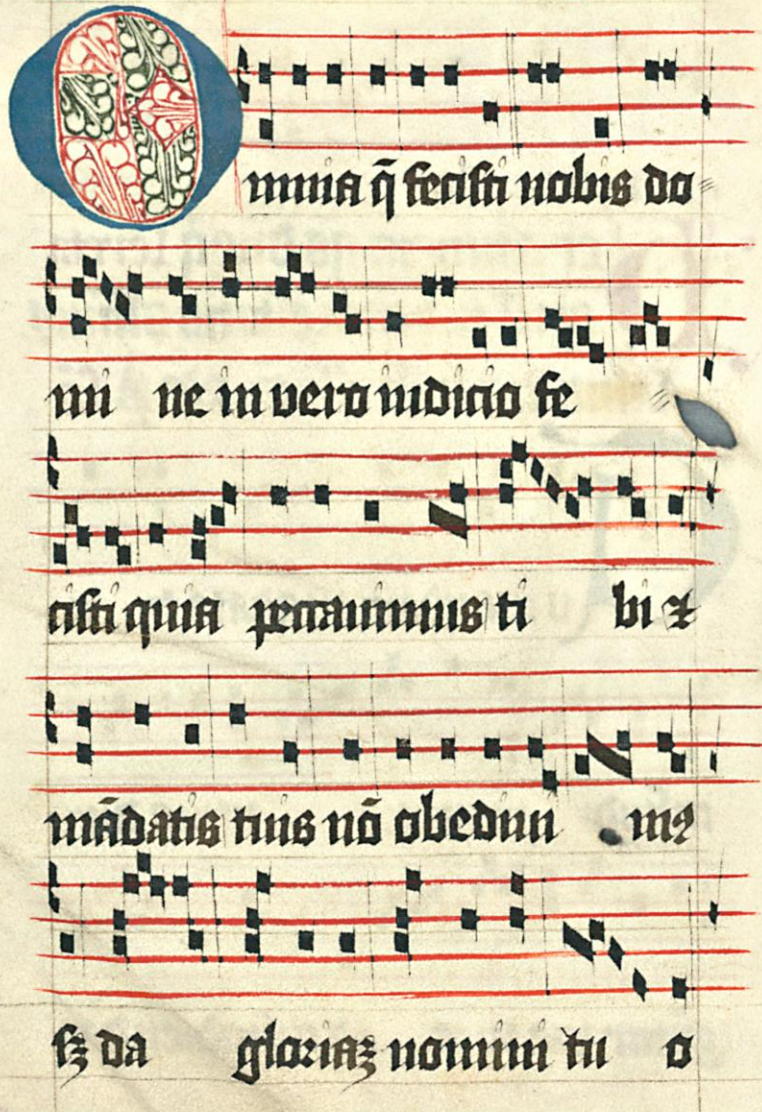 Omnia q̄ fecisti nobis do⸗
mi ne in vero iudicio fe⸗
cisti quia peccauimus ti bi ⁊
mādatis tuis nō obediui mꝯ
sꝫ da gloriaꝫ nomini tu o